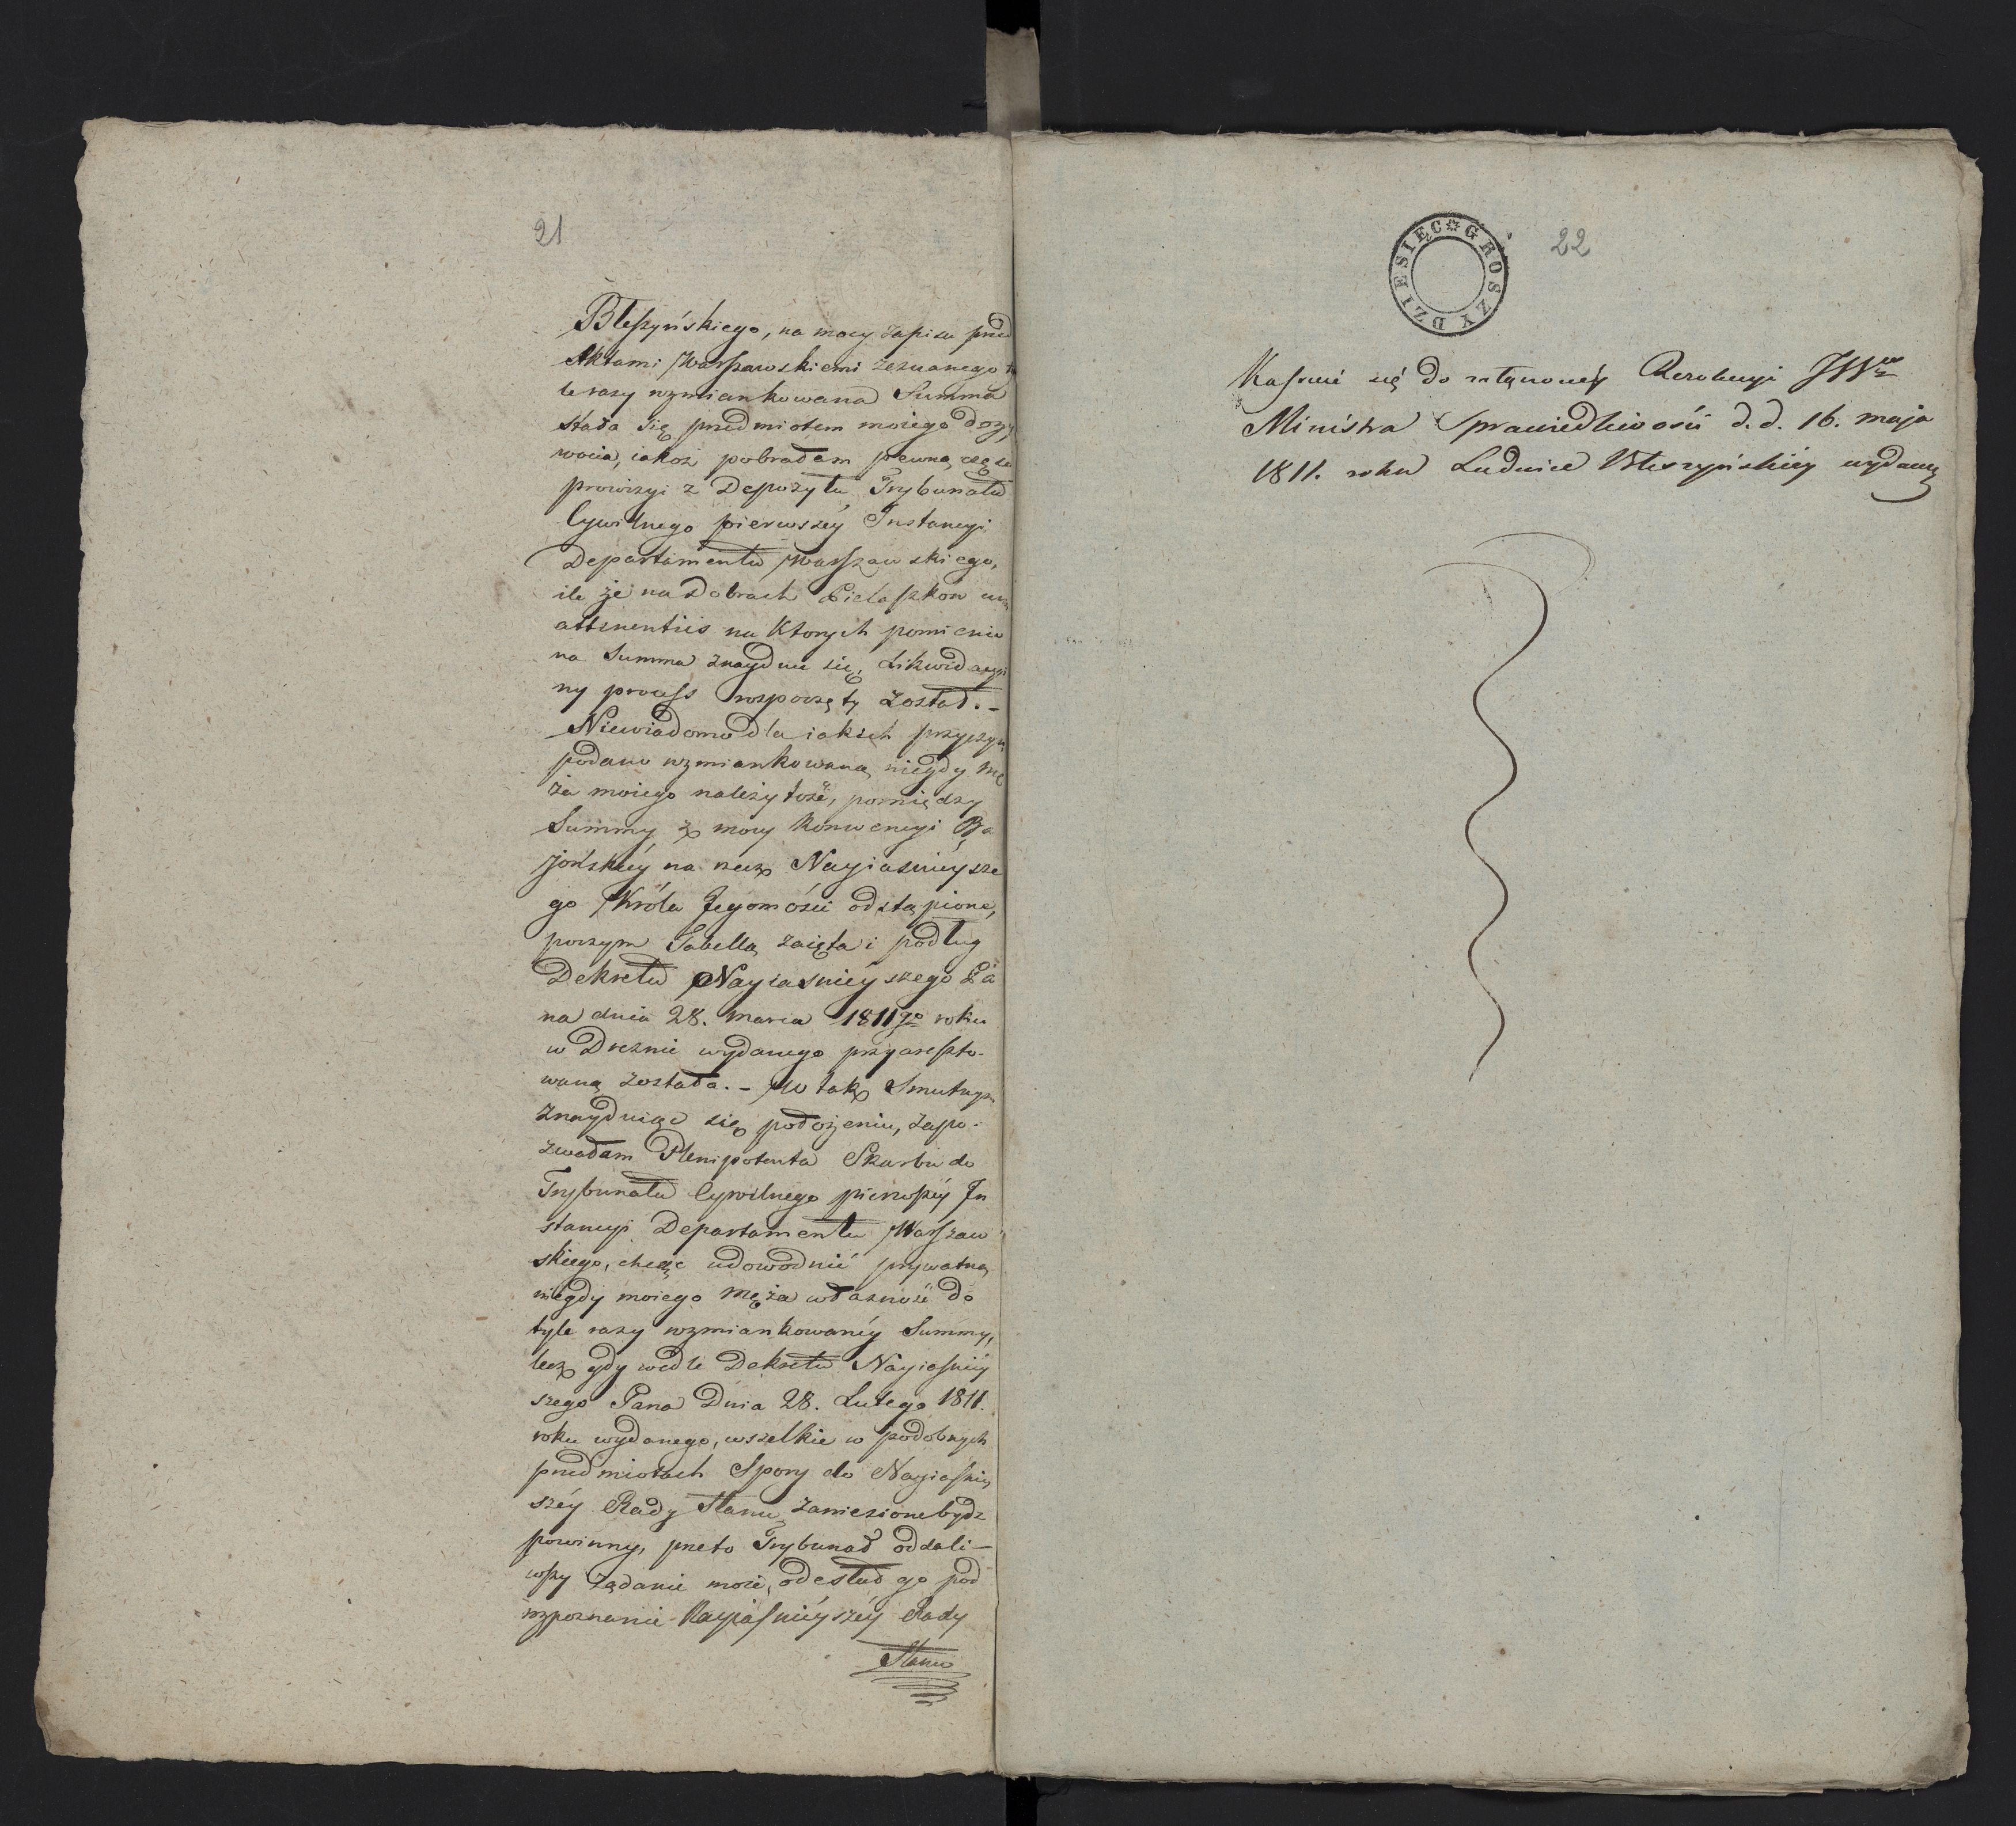 21
Bleszyńskiego, na mocy zapisu przed
Aktami Warszawskiemi zeznanego ty
le razy wzmiankowana Summa
stała się przedmiotem moiego doży
wocia, iakoż pobrałam pewną część
prowizyi z Depozytu Trybunału
Cywilnego pierwszéy Instancyi
Departamentu Warszawskiego,
ile że na Dobrach Pielaszkow cum
attinentiis na Ktorych pomienio
na Summa znayduie się, Likwidacyi
ny process rozpoczęty został. –
Niewiadomo dla iakich przyczyn
podano wzmiankowaną niegdy mę
ża moiego należytość, pomiędzy
Summy z mocy Konwencyi Ba
jońskiéy na rzecz Nayiaśniéysze
go Króla Jegomości odstąpione,
poczym Tabellą zaięta i podług
Dekretu Nayiaśniéyszego Pa
na dnia 28. marca 1811go roku
w Dreznie wydanego przyareszto-
waną została. – W tak Smutnym
znayduiąc się położeniu, zapo-
zwałam Plenipotenta Skarbu do
Trybunału Cywilnego pierwszéy In
stancyi Departamentu Warszaw
skiego, chcąc udowodnić prywatną
niegdy moiego Męża własność do
tyle razy wzmiankowanéy Summy,
lecz gdy wedle Dekretu Nayiaśniéy
szego Pana Dnia 28. Lutego 1811.
roku wydanego, wszelkie w podobnych
przedmiotach Spory do Nayiaśniéy
széy Rady Stanu zaniesione bydz
powinny, przeto Trybunał oddali-
wszy żądanie moie, odesłał go pod
rozpoznanie Nayiaśniéyszéy Rady
Stanu
DZIESIĘC GROSZY
22
Kasuie się do Rezolucyi JWgo
Ministra Sprawiedliwości d.d. 16. maja
1811. roku Ludwice Bleszyńskiéy wydaney